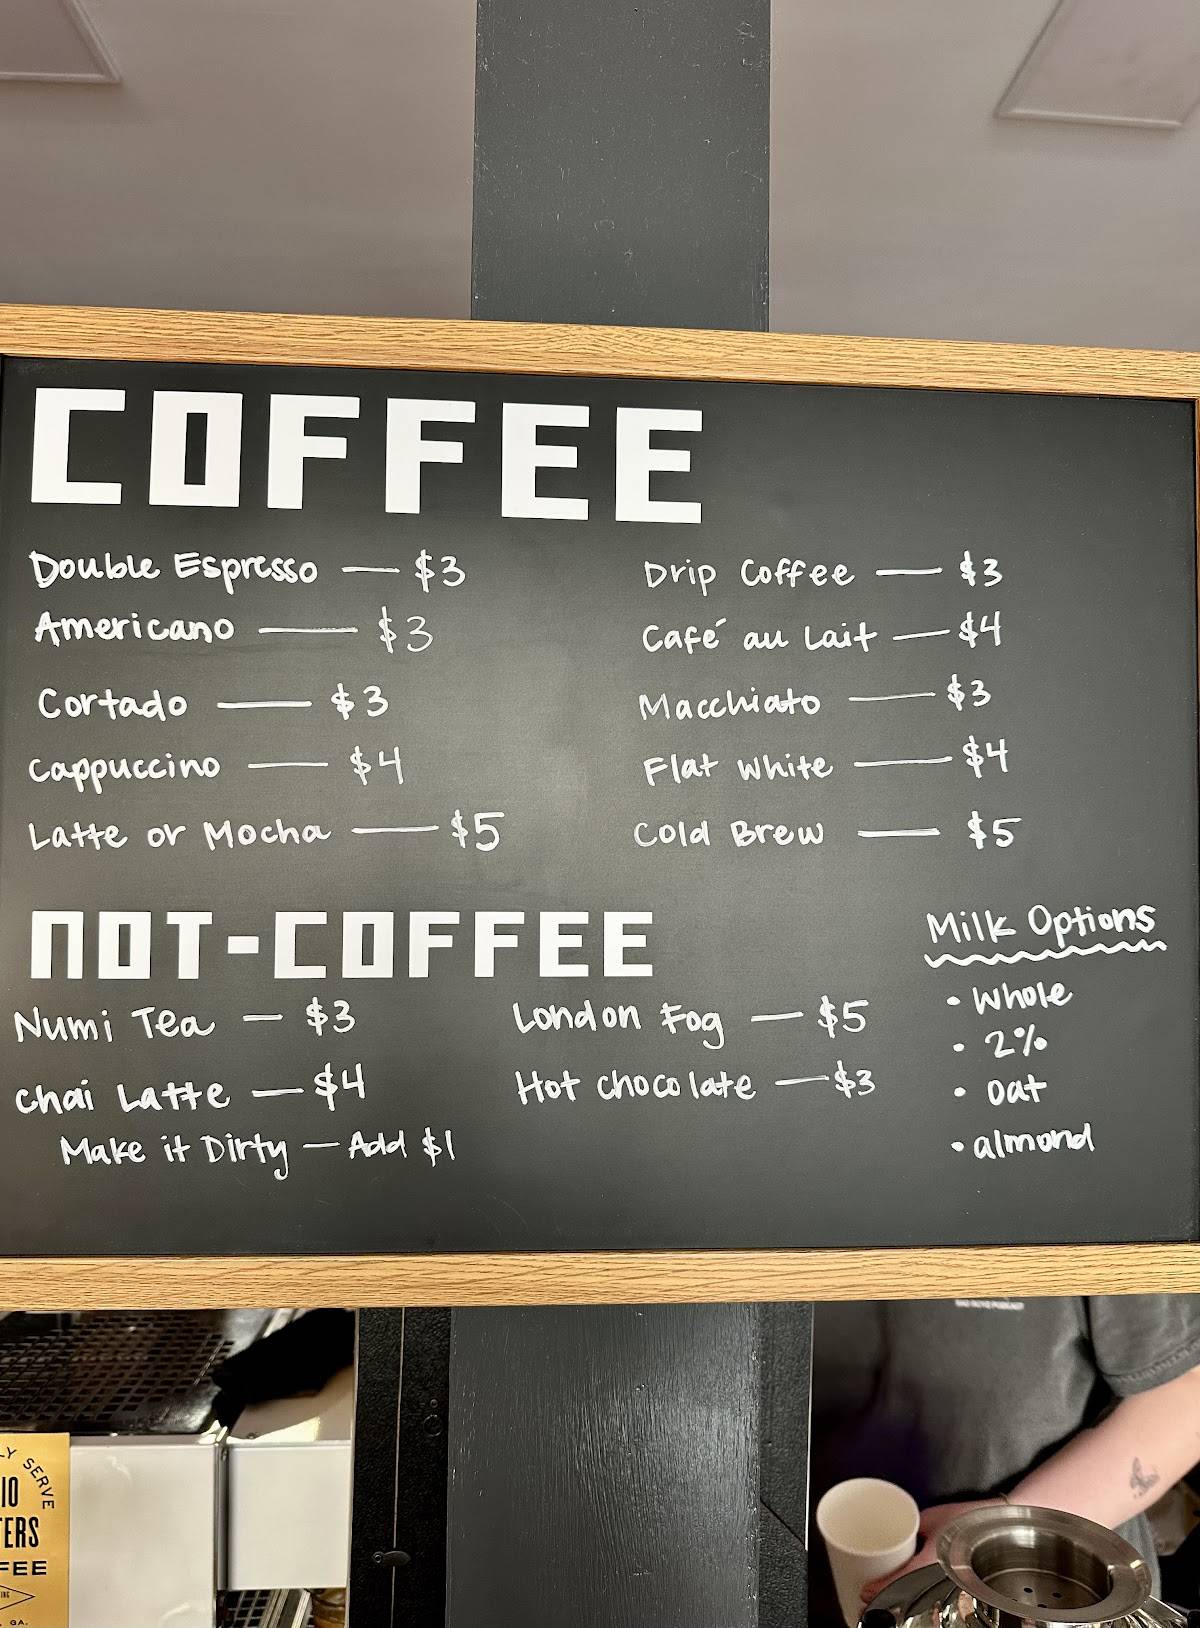 COFFEE
Double Espresso — $3
Americano — $3
Cortado — $3
Cappuccino — $4
Latte or Mocha — $5
Drip Coffee — $3
Café au Lait — $4
Macchiato — $3
Flat White — $4
Cold Brew — $5
NOT-COFFEE
Numi Tea — $3
Chai Latte — $4
Make it Dirty — Add $1
London Fog — $5
Hot Chocolate — $3
Milk Options
• Whole
• 2%
• oat
• almond
LY SERVE
IO
TERS
FEE
GA.